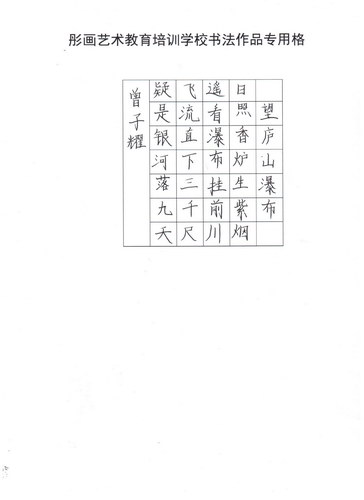 彤画艺术教育培训学校书法作品专用格
望庐山瀑布
日照香炉生紫烟
遥看瀑布挂前川
飞流直下三千尺
疑是银河落九天
曾子耀